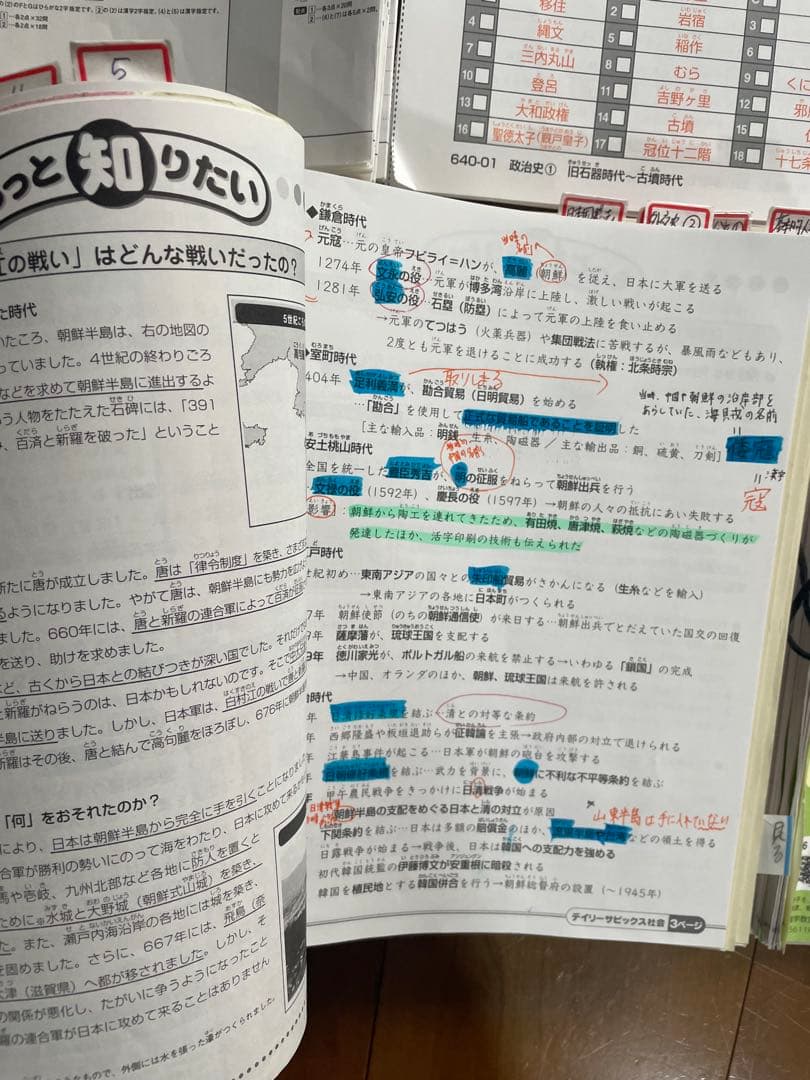 (2)のFとGはひらがな2字指定です。
5
移住
岩宿
4 縄文
5 稲作
7 三内丸山
8 むら
10 登呂
11 吉野ヶ里
13 大和政権
14 古墳
16 聖徳太子(厩戸皇子)
17 冠位十二階
3
6
9 くに
12
15
18
640-01 政治史① 旧石器時代~古墳時代
っと知りたい
の戦い」はどんな戦いだったの?
た時代
いたころ、朝鮮半島は、右の地図の
っていました。4世紀の終わりごろ
などを求めて朝鮮半島に進出するよ
う人物をたたえた石碑には、「391
み、百済と新羅を破った」ということ
5世紀
新たに唐が成立しました。唐は「律令制度」を築き、
るようになりました。やがて唐は、朝鮮半島にも勢力を
ました。660年には、唐と新羅の連合軍によって百済が
を送り、助けを求めました。
ど、古くから日本との結びつきが深い国でした。それだけ
と新羅がねらうのは、日本かもしれないのです。そこで
半島に送りました。しかし、日本軍は、白村江の戦いで唐と新羅
新羅はその後、唐と結んで高句麗をほろぼし、676年に朝鮮半
「何」をおそれたのか?
により、日本は朝鮮半島から完全に手を引くことになりま
合軍が勝利の勢いにのって海をわたり、日本に攻めて来る
馬や壱岐、九州北部など各地に防人を置くと
ために※水城と大野城(朝鮮式山城)を築き、
た。また、瀬戸内海沿岸の各地には城を築き、
を固めました。さらに、667年には、飛鳥(奈
大津(滋賀県)へ都が移されました。しかし、そ
の関係が悪化し、たがいに争うようになったこと
羅の連合軍が日本に攻めて来ることはありません
たもので、外側には水を張った濠がつくられました。
◆鎌倉時代
元寇…元の皇帝フビライ=ハンが、高麗(朝鮮)を従え、日本に大軍を送る
1274年 文永の役…元軍が博多湾沿岸に上陸し、激しい戦いが起こる
1281年 弘安の役…石塁(防塁)によって元軍の上陸を食い止める
→元軍のてつはう(火薬兵器)や集団戦法に苦戦するが、暴風雨などもあり、
2度とも元軍を退けることに成功する(執権:北条時宗)
◆室町時代
取りしまる
404年 足利義満が、勘合貿易(日明貿易)を始める
当時、中国や朝鮮の沿岸部を
あらしていた、海賊の名前
…「勘合」を使用して正式な貿易船であることを証明した
[主な輸入品:明銭、生糸、陶磁器/主な輸出品:銅、硫黄、刀剣]
倭寇
寇
安土桃山時代
全国を統一した豊臣秀吉が、明の征服をねらって朝鮮出兵を行う
…文禄の役(1592年)、慶長の役(1597年)→朝鮮の人々の抵抗にあい失敗する
影響:朝鮮から陶工を連れてきたため、有田焼、唐津焼、萩焼などの陶磁器づくりが
発達したほか、活字印刷の技術も伝えられた
戸時代
世紀初め…東南アジアの国々との朱印船貿易がさかんになる(生糸などを輸入)
→東南アジアの各地に日本町がつくられる
7年 朝鮮使節(のちの朝鮮通信使)が来日する…朝鮮出兵でとだえていた国交の回復
9年 薩摩藩が、琉球王国を支配する
9年 徳川家光が、ポルトガル船の来航を禁止する→いわゆる「鎖国」の完成
→中国、オランダのほか、朝鮮、琉球王国は来航を許される
治時代
年 日清修好条規を結ぶ…清との対等な条約
年 西郷隆盛や板垣退助らが征韓論を主張→政府内部の対立で退けられる
年 江華島事件が起こる…日本軍が朝鮮の砲台を攻撃する
年 日朝修好条規を結ぶ…武力を背景に、朝鮮に不利な不平等条約を結ぶ
年 甲午農民戦争をきっかけに日清戦争が始まる
朝鮮半島の支配をめぐる日本と清の対立が原因
山東半島は手に入れていない
下関条約を結ぶ…日本は多額の賠償金のほか、遼東半島や台湾などの領土を得る
日露戦争が始まる→戦争後、日本は韓国への支配力を強める
初代韓国統監の伊藤博文が安重根に暗殺される
韓国を植民地とする韓国併合を行う→朝鮮総督府の設置(~1945年)
デイリーサピックス社会 3ページ